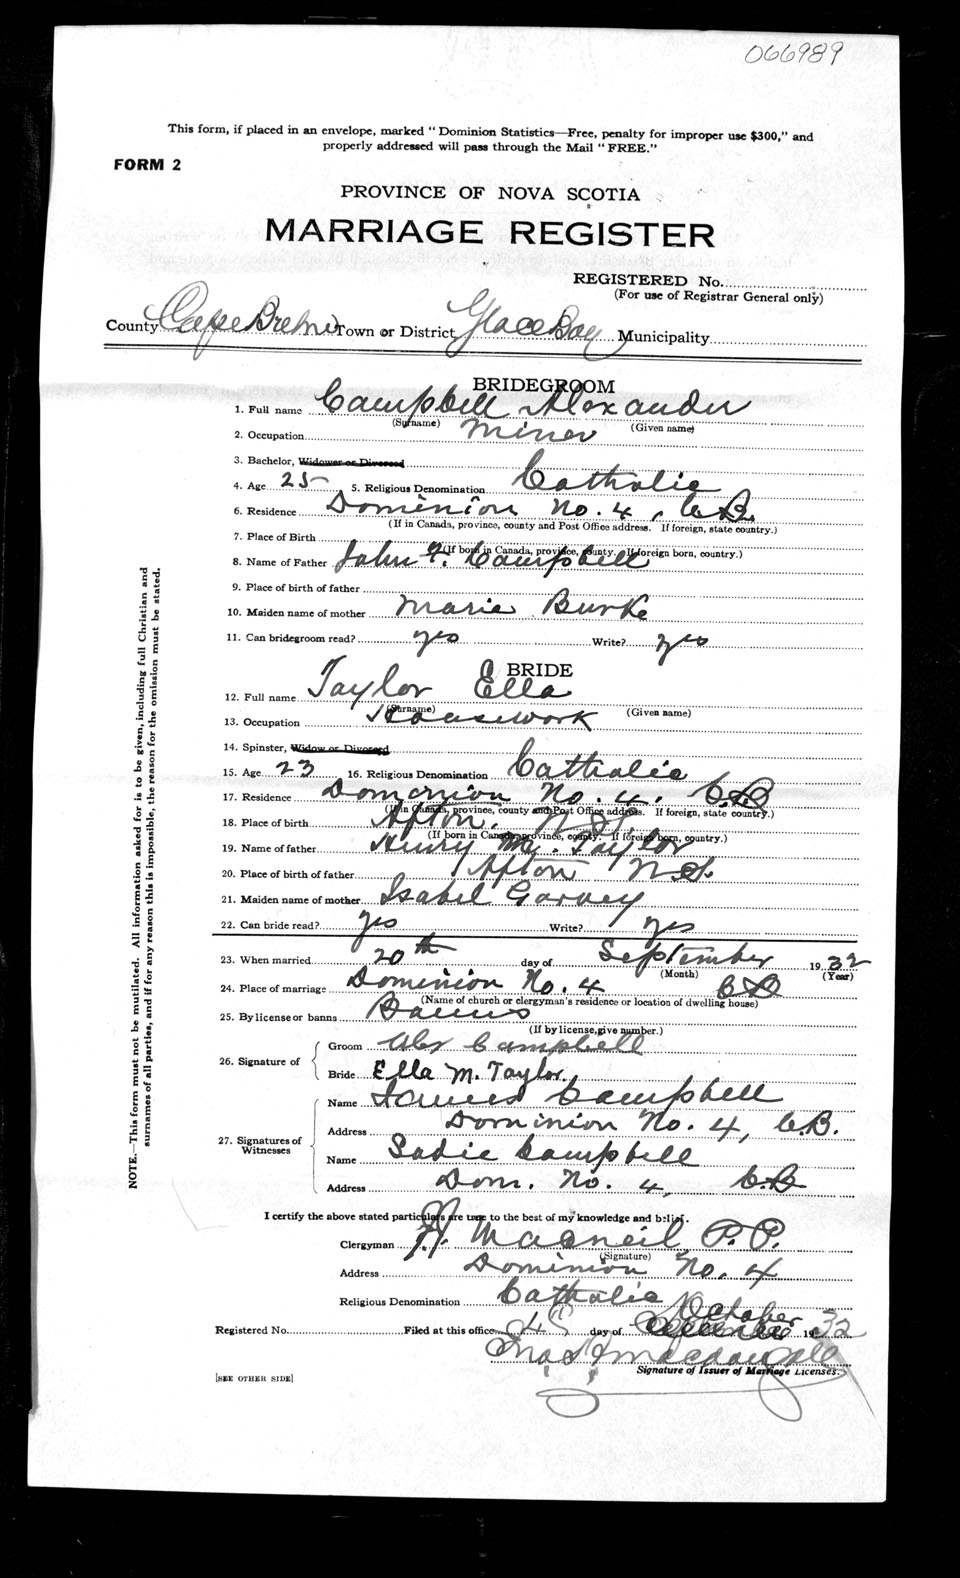 066989
This form, if placed in an envelope, marked "Dominion Statistics—Free, penalty for improper use $300," and
properly addressed will pass through the Mail "FREE."
FORM 2
PROVINCE OF NOVA SCOTIA
MARRIAGE REGISTER
REGISTERED No.
(For use of Registrar General only)
County Cape Breton Town or District Glace Bay Municipality
BRIDEGROOM
1. Full name Campbell Alexander
(Surname) (Given name)
2. Occupation Miner
3. Bachelor, Widower or Divorced
4. Age 25 5. Religious Denomination Catholic
6. Residence Dominion No. 4, C.B.
(If in Canada, province, county and Post Office address. If foreign, state country.)
7. Place of Birth
(If born in Canada, province, county. If foreign born, country.)
8. Name of Father John F. Campbell
9. Place of birth of father
10. Maiden name of mother Marie Burke
11. Can bridegroom read? yes Write? yes
BRIDE
12. Full name Taylor Ella
(Surname) (Given name)
13. Occupation Housework
14. Spinster, Widow or Divorced
15. Age 23 16. Religious Denomination Catholic
17. Residence Dominion No. 4. C.B.
(If in Canada, province, county and Post Office address. If foreign, state country.)
18. Place of birth Afton. N.S.
(If born in Canada, province, county. If foreign born, country.)
19. Name of father Henry Taylor
20. Place of birth of father Afton N.S.
21. Maiden name of mother Isabel Garvey
22. Can bride read? yes Write? yes
23. When married 20th day of September 1932
(Month) (Year)
24. Place of marriage Dominion No. 4 C.B.
(Name of church or clergyman's residence or location of dwelling house)
25. By license or banns Banns
(If by license, give number.)
26. Signature of
Groom Alex Campbell
Bride Ella M. Taylor
27. Signatures of Witnesses
Name James Campbell
Address Dominion No. 4, C.B.
Name Sadie Campbell
Address Dom. No. 4, C.B.
I certify the above stated particulars are true to the best of my knowledge and belief.
Clergyman Macneil P.P.
(Signature)
Address Dominion No. 4
Religious Denomination Catholic
October
Registered No. Filed at this office day of 1932
Signature of Issuer of Marriage Licenses.
[SEE OTHER SIDE]
NOTE.—This form must not be mutilated. All information asked for is to be given, including full Christian and
surnames of all parties, and if for any reason this is impossible, the reason for the omission must be stated.